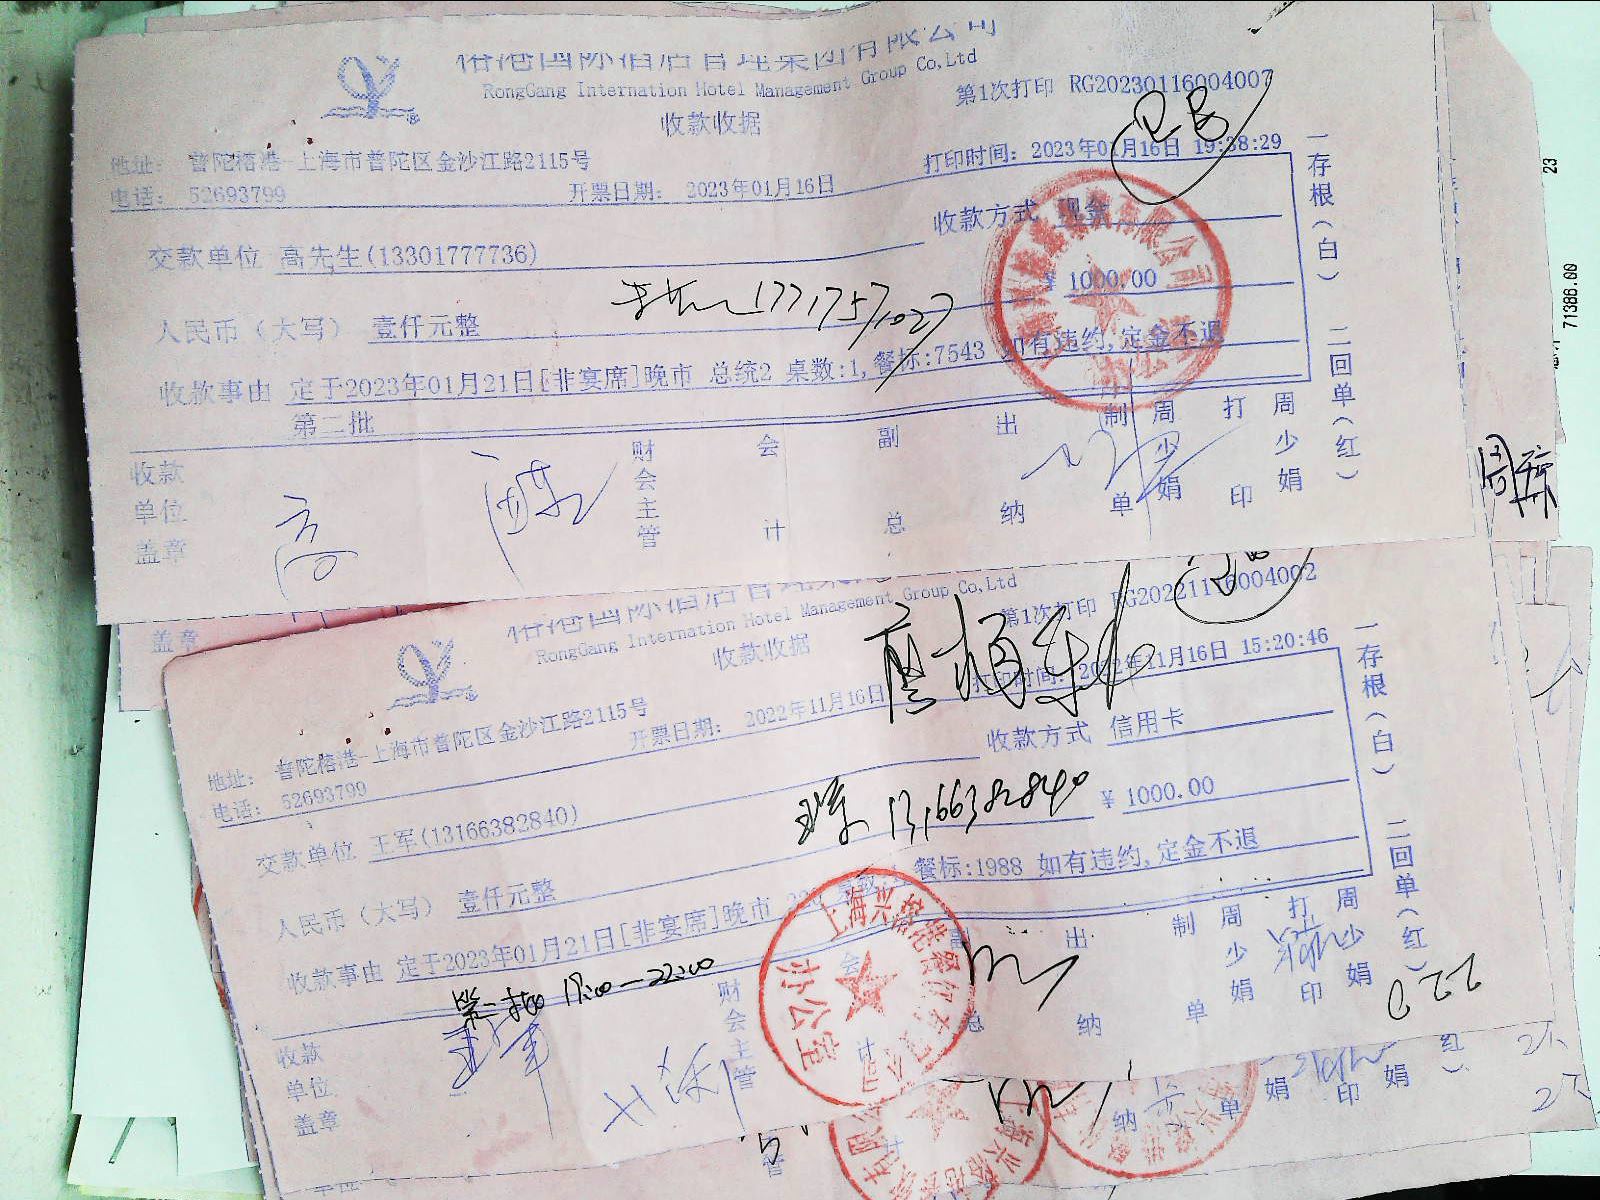 国际酒店管理集团有限公司
RongGang Internation Hotel Management Group Co,Ltd
第1次打印 RG20230116004007
收款收据
地址: 普陀榕港-上海市普陀区金沙江路2115号
打印时间: 2023年01月16日 19:38:29
电话: 52693799
开票日期: 2023年01月16日
收款方式 现金
交款单位 高先生(13301777736)
¥ 1000.00
17717571027
人民币(大写) 壹仟元整
收款事由 定于2023年01月21日[非宴席]晚市 总统2 桌数:1,餐标:7543 如有违约,定金不退
第二批
收款单位盖章
高
财会主管
会计
副总
出纳
制单
周少娟
打印
周少娟
一存根(白) 二回单(红)
71386.00
23
盖章
国际酒店管理集
RongGang Internation Hotel Management Group Co,Ltd
第1次打印 RG20221116004002
收款收据
地址: 普陀榕港-上海市普陀区金沙江路2115号
打印时间: 2022年11月16日 15:20:46
电话: 52693799
开票日期: 2022年11月16日
收款方式 信用卡
交款单位 王军(13166382840)
13166382840
¥ 1000.00
人民币(大写) 壹仟元整
收款事由 定于2023年01月21日[非宴席]晚市 220 桌数 餐标:1988 如有违约,定金不退
第一批 17:00—22:00
收款单位盖章
王军
财会主管
会计
副总
出纳
制单
周少娟
打印
周少娟
一存根(白) 二回单(红)
220
办公室
纳
单
娟
印
娟
红)
管
计